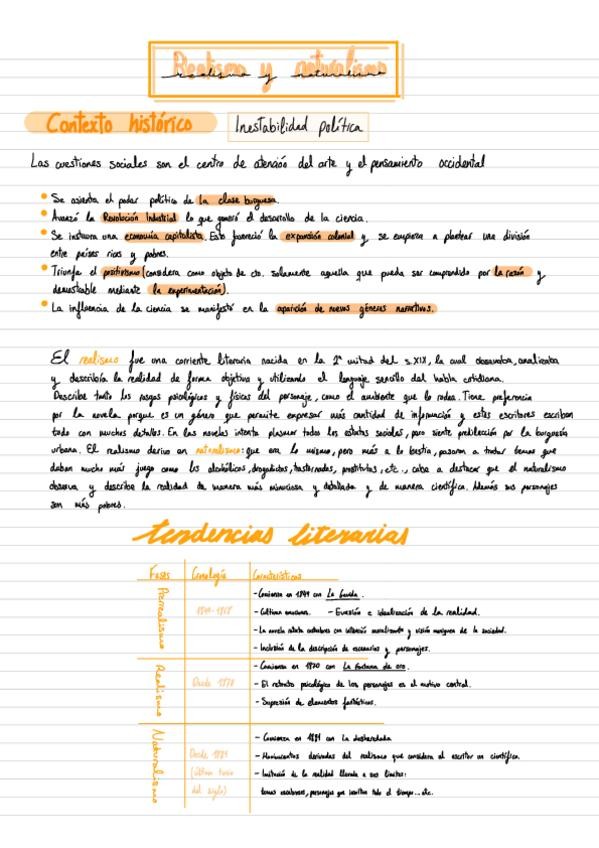 Realismo y naturalismo
Contexto histórico
Inestabilidad política
Las cuestiones sociales son el centro de atención del arte y el pensamiento occidental
• Se asienta el poder político de la clase burguesa.
• Avanzó la Revolución Industrial lo que generó el desarrollo de la ciencia.
• Se instaura una economía capitalista. Esto favoreció la expansión colonial y se empieza a plantear una división
entre países ricos y pobres.
• Triunfa el positivismo (considera como objeto de cto. solamente aquello que pueda ser comprendido por la razón y
demostrable mediante la experimentación).
• La influencia de la ciencia se manifestó en la aparición de nuevos géneros narrativos.
El realismo fue una corriente literaria nacida en la 2ª mitad del s.XIX, la cual observaba, analizaba
y describía la realidad de forma objetiva y utilizando el lenguaje sencillo del habla cotidiana.
Describe tanto los rasgos psicológicos y físicos del personaje, como el ambiente que lo rodea. Tiene preferencia
por la novela porque es un género que permite expresar más cantidad de información y estos escritores escriben
todo con muchos detalles. En las novelas intenta plasmar todos los estratos sociales, pero siente predilección por la burguesía
urbana. El realismo deriva en naturalismo: que era lo mismo, pero más a lo bestia, pasaron a tratar temas que
daban mucho más juego como los alcohólicos, drogadictos, trastornados, prostitutas, etc., cabe a destacar que el naturalismo
observa y describe la realidad de manera más minuciosa y detallada y de manera científica. Además sus personajes
son más pobres.
tendencias literarias
Fases Cronología Características
Prerrealismo
- Comienza en 1849 con La Gaviota.
1849-1868
- Cultivan - Evasión e idealización de la realidad.
- La novela retrata costumbres con intención moralizante y visión maniquea de la sociedad.
- Inclusión de la descripción de escenarios y personajes.
Realismo
- Comienza en 1870 con La Fontana de oro.
Desde 1870
- El retrato psicológico de los personajes es el motivo central.
- Supresión de elementos fantásticos.
Naturalismo
- Comienza en 1881 con La desheredada
Desde 1881
(último tercio
del siglo)
- Movimientos derivados del realismo que considera al escritor un científico.
- Imitación de la realidad llevada a sus límites:
temas escabrosos, personajes que todo el tiempo... etc.